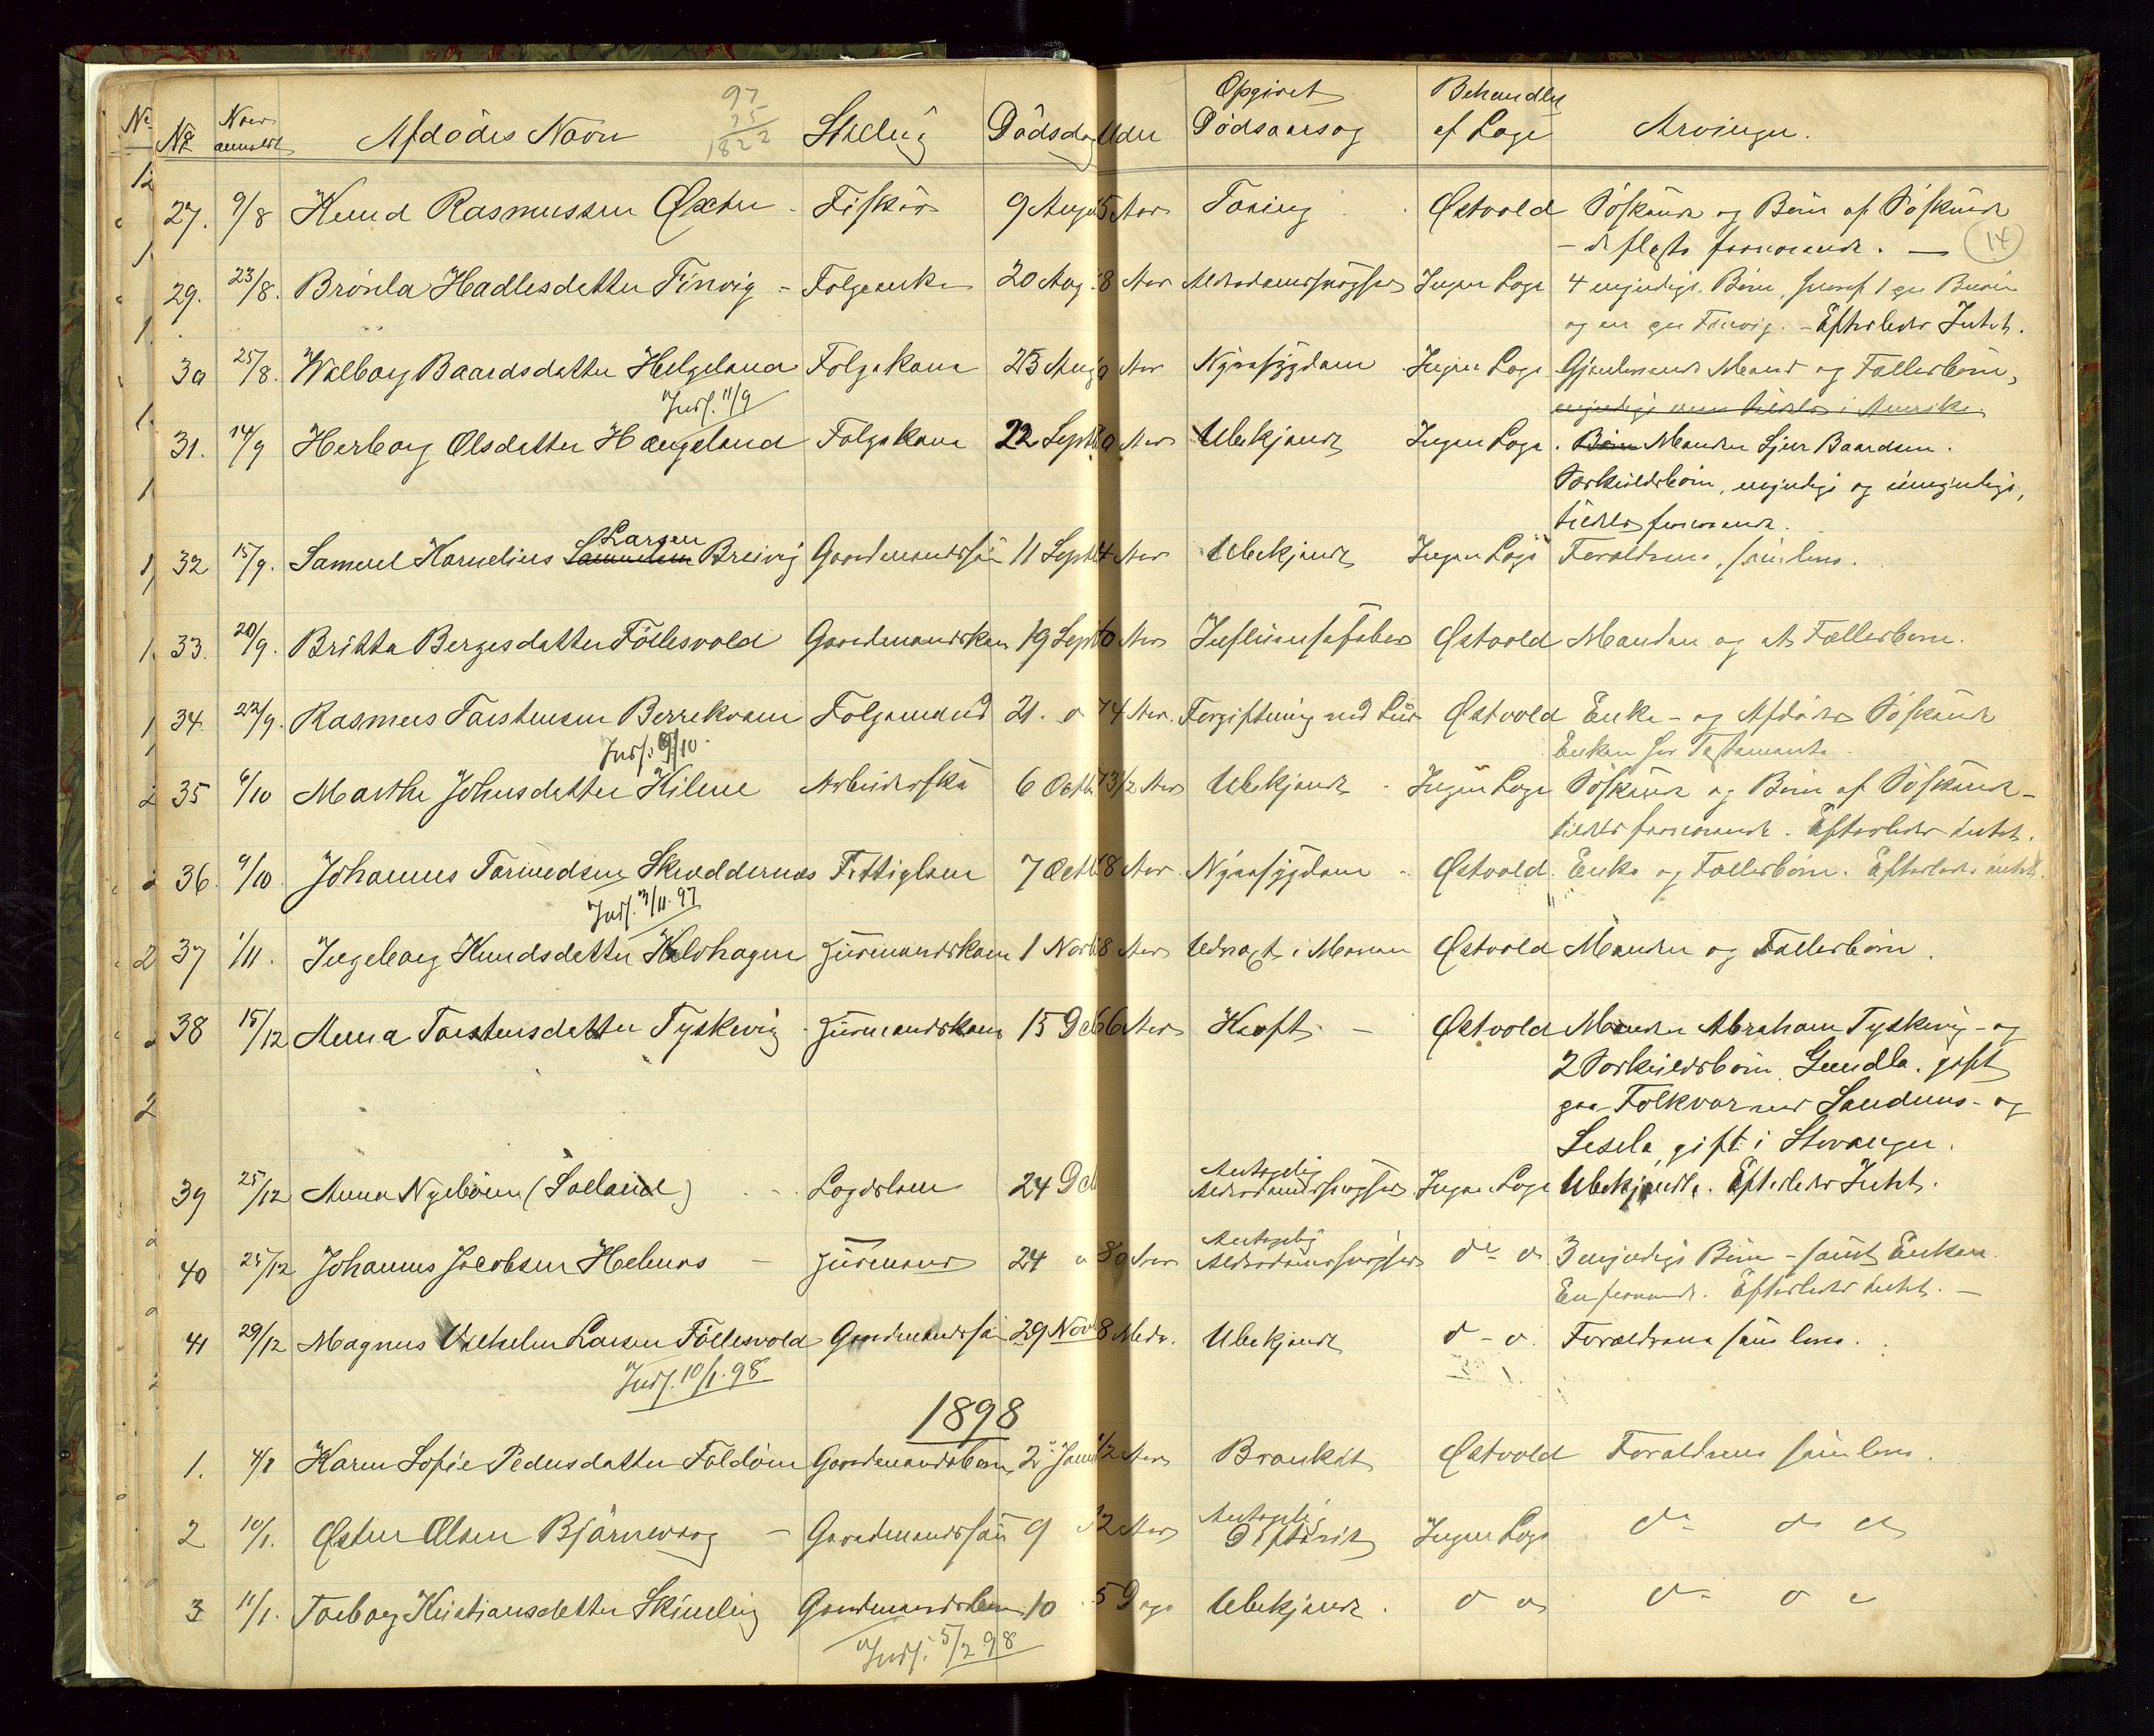 No. Naar anmeldt Afdødes Navn Stilling Dødsdag Alder Opgivet Dødsaarsag Behandlet af Læge Arvinger.
97
75
1822
27. 9/8 Knud Rasmussen Østen - Fisker 9 Aug 5 Aar Tæring Østvold Søskende og Børn af Søskende
- de fleste fraværende. - 14
29. 23/8. Brønla Hadlesdatter Finvig - Folgeenke 20 Aug. 8 Aar Alderdomssvaghed Ingen Læge 4 myndige Børn, hvoraf 1 paa
og en paa Finvig. - Efterlader Intet.
30 25/8. Walborg Baardsdatter Helgeland Folgekone 23 Aug Aar Nyresygdom Ingen Læge Gjenlevende Mand og Fællesbørn,
Indf. 11/9 myndige i Amerika
31. 14/9 Herborg Olsdatter Haugeland Folgekone 22 Sept Aar Ubekjendt Ingen Læge. Børn Manden Sjur Baardsen.
Særkuldsbørn, myndige og umyndige,
tildels fraværende.
Larsen
32 15/9. Samuel Kornelius Samuelsen Breivig Gaardmandssøn 11 Sept 4 Aar Ubekjendt Ingen Læge Forældrene, som leve.
33. 20/9. Britta Bergesdatter Føllesvold Gaardmandskone 19 Sept 0 Aar Influensafeber Østvold Manden og et Fællesbarn.
34. 22/9. Rasmus Torstensen Berrekvam Folgemand 21. " 74 Aar. Forgiftning ved Lud Østvold Enke - og Afdødes Søskende
Indf. 9/10. Enken har Testamente.
35 6/10 Marthe Johnsdatter Hilme Arbeiderske 6 Octb 73 1/2 Aar Ubekjendt - Ingen Læge Søskende og Børn af Søskende -
tildels fraværende. Efterlader intet.
36. 9/10. Johannes Tormodsen Skreddernæs Fattiglem 7 Octb 8 Aar. Nyresygdom - Østvold. Enke og Fællesbørn. Efterlader intet.
Indf. 3/11. 97
37 1/11. Ingeborg Knudsdatter Halvhagen Huusmandskone 1 Novb 8 Aar i Maven Østvold Manden og Fællesbørn.
38 15/12 Anna Torstensdatter Tyskevig - Huusmandskone 15 Dec 66 Aar Kræft. - Østvold Manden Abraham Tyskevig - og
2 Særkuldsbørn, Gundla, gift
paa Folkvar med - og
Sesela, gift i Stavanger.
39 25/12 Anna Nybøen (Søeland) - Lægdslem 24 Dec Antagelig Alderdomssvaghed Ingen Læge Ubekjendte. Efterlader Intet.
40 25/12 Johannes Jacobsen Helnæs - Huusmand 24 " 89 Aar Antagelig Alderdomssvaghed do o 3 myndige Børn - samt Enken.
En fraværende. Efterlader intet. -
41 29/12 Magnus Vilhelm Larsen Føllesvold Gaardmandssøn 29 Nov 8 Mdr. Ubekjendt d - o. Forældrene som leve.
Indf. 10/1. 98
1898
1. 4/1 Karen Sofie Pedersdatter Foldøen Gaardmandsbarn 2 Janu 1/2 Aar Bronkit Østvold Forældrene som leve.
2 10/1. Østen Olsen Bjørnevaag - Gaardmandssøn 9 12 Aar Antagelig Difterit Ingen Læge do do o
3 11/1. Torborg Kristiansdatter Gaardmandsbarn 10 . 5 Dage Ubekjendt. o o do o o
Indf. 5/2 98